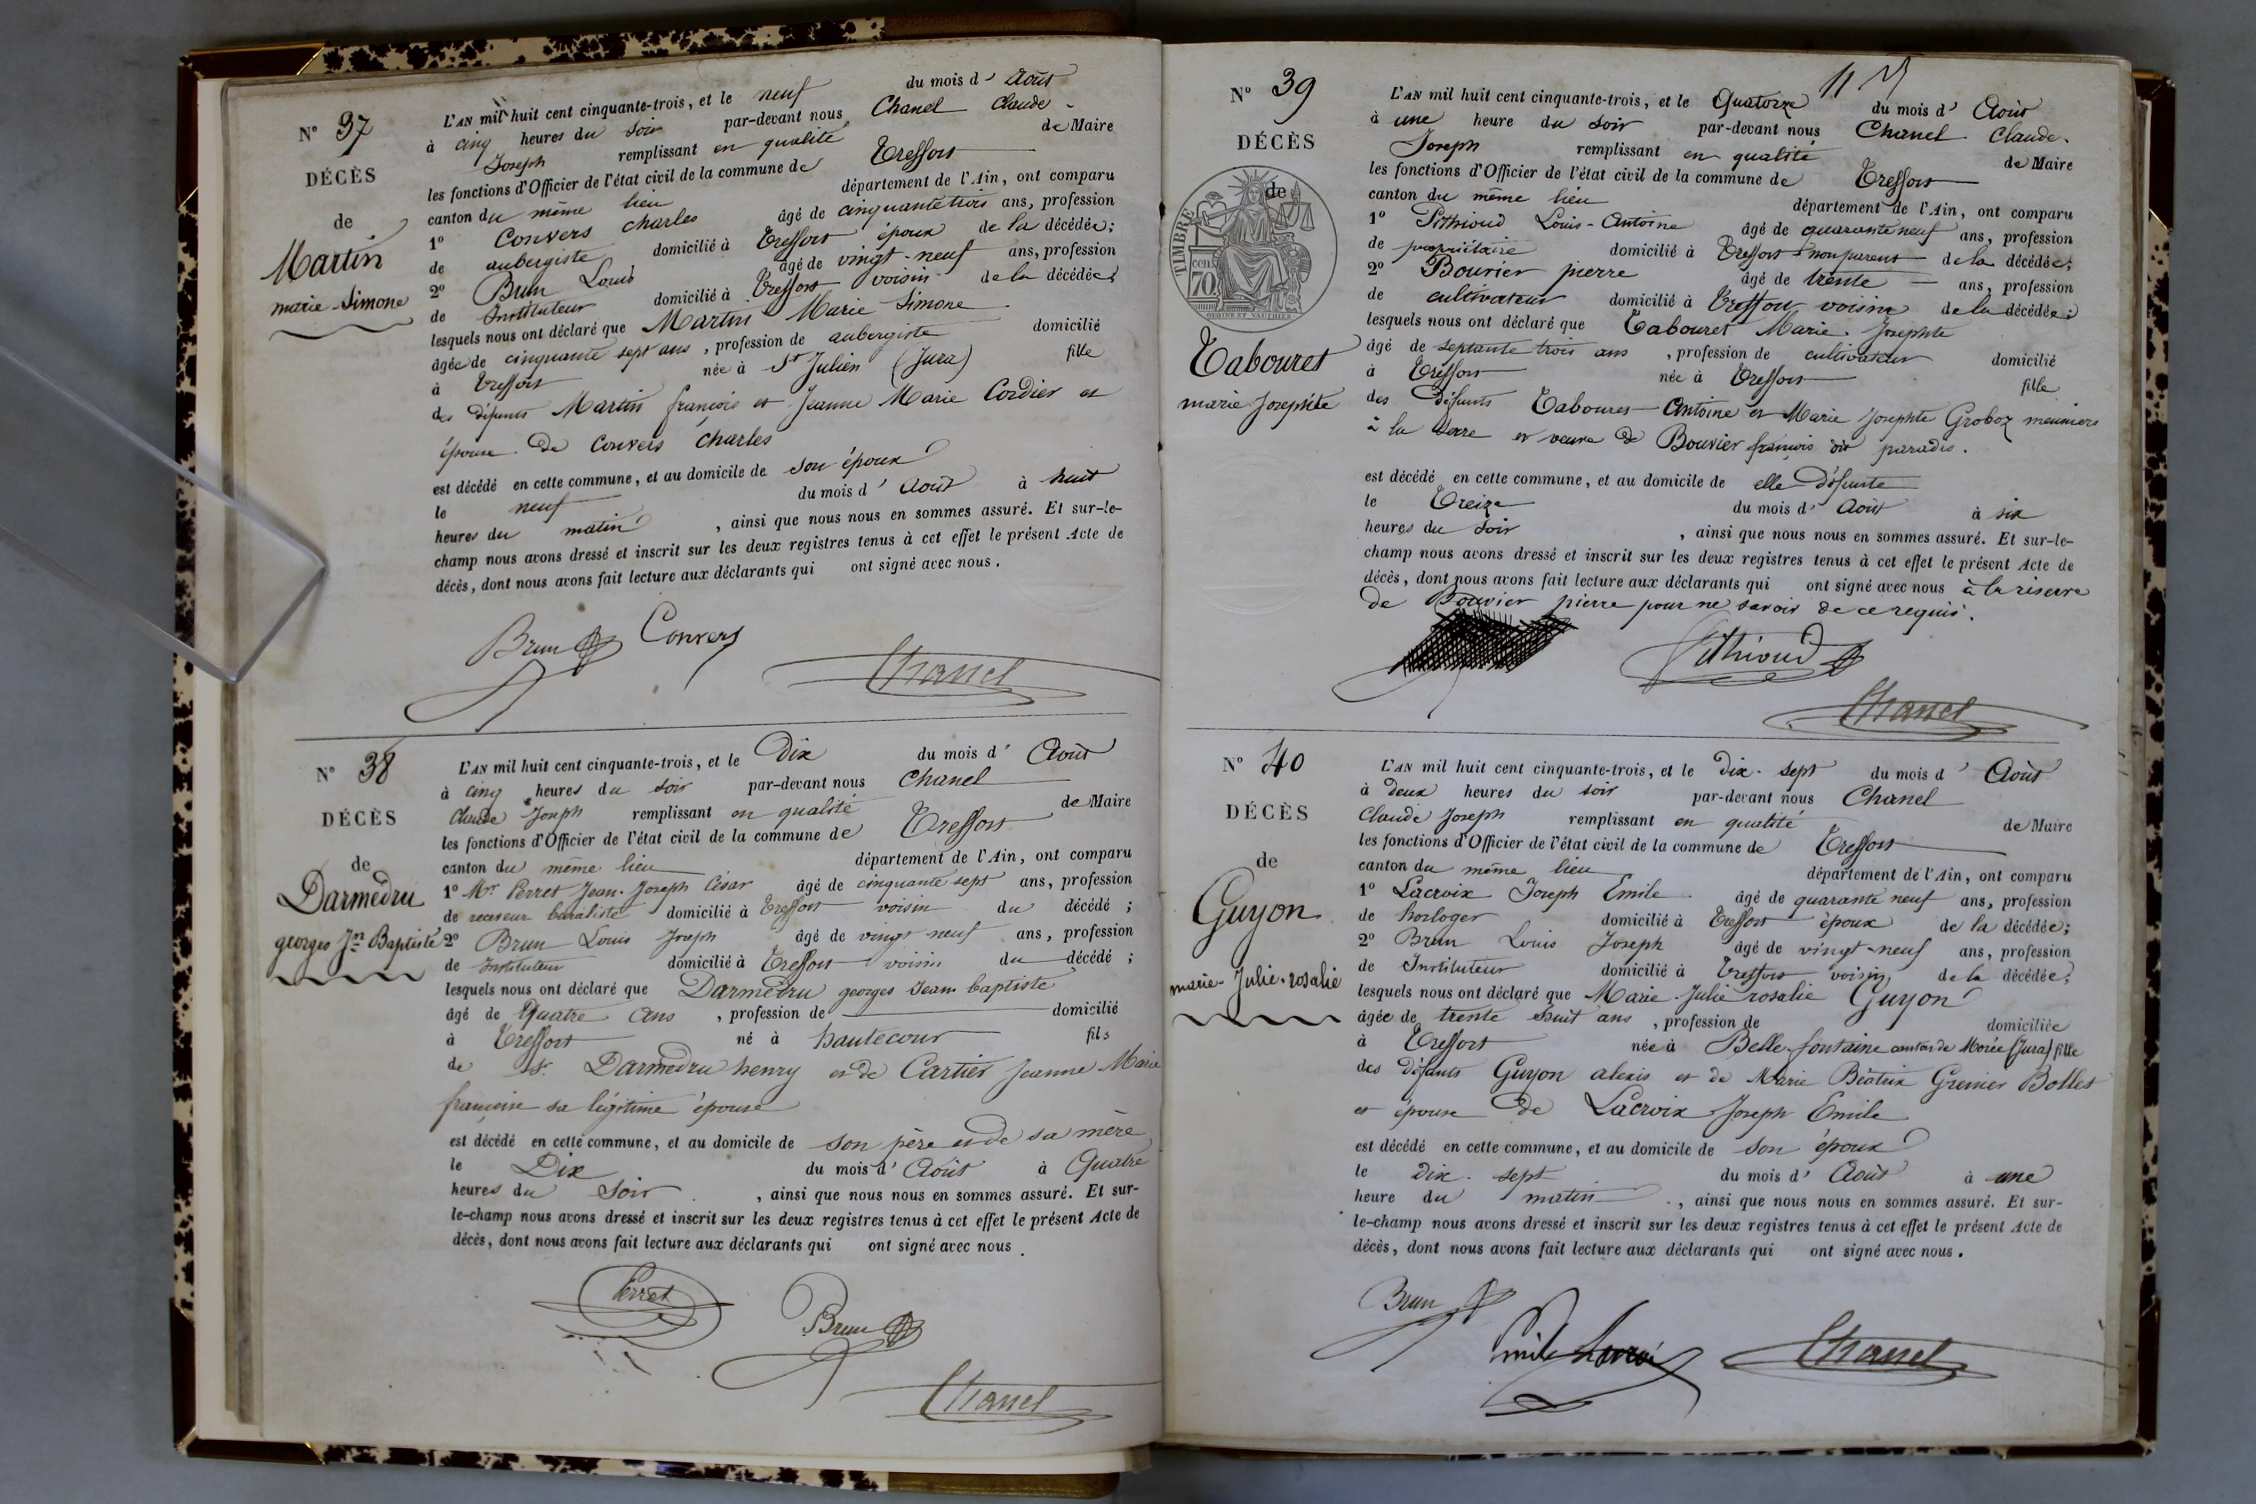 N° 37
DÉCÈS
de
Martin
marie-Simone
L'AN mil huit cent cinquante-trois, et le neuf du mois d' Août
à cinq heures du soir par-devant nous Chanel Claude-
Joseph remplissant en qualité de Maire
les fonctions d'Officier de l'état civil de la commune de Treffort
canton du même lieu département de l'Ain, ont comparu
1° Convers charles âgé de cinquante trois ans, profession
de aubergiste domicilié à Treffort époux de la décédée;
2° Brun Louis âgé de vingt-neuf ans, profession
de Instituteur domicilié à Treffort voisin de la décédée;
lesquels nous ont déclaré que Martin Marie Simone
âgée de cinquante sept ans, profession de aubergiste domicilié
à Treffort née à St Julien (Jura) fille
des défunts Martin françois et Jeanne Marie Cordier et
épouse de Convers Charles
est décédé en cette commune, et au domicile de son époux
le neuf du mois d' Août à huit
heures du matin, ainsi que nous nous en sommes assuré. Et sur-le-
champ nous avons dressé et inscrit sur les deux registres tenus à cet effet le présent Acte de
décès, dont nous avons fait lecture aux déclarants qui ont signé avec nous.
Brun Convers
Chanel
N° 38
DÉCÈS
de
Darmedru
georges Jn Baptiste
L'AN mil huit cent cinquante-trois, et le Dix du mois d' Août
à cinq heures du soir par-devant nous Chanel
Claude Joseph remplissant en qualité de Maire
les fonctions d'Officier de l'état civil de la commune de Treffort
canton du même lieu département de l'Ain, ont comparu
1° Mr Perret Jean-Joseph César âgé de cinquante sept ans, profession
de receveur buraliste domicilié à Treffort voisin du décédé;
2° Brun Louis Joseph âgé de vingt neuf ans, profession
de Instituteur domicilié à Treffort voisin du décédé;
lesquels nous ont déclaré que Darmedru georges Jean baptiste
âgé de Quatre ans, profession de domicilié
à Treffort né à hautecour fils
de Sr Darmedru henry et de Cartier Jeanne Marie
françoise sa légitime épouse
est décédé en cette commune, et au domicile de son père et de sa mère
le Dix du mois d' Août à Quatre
heures du Soir, ainsi que nous nous en sommes assuré. Et sur-
le-champ nous avons dressé et inscrit sur les deux registres tenus à cet effet le présent Acte de
décès, dont nous avons fait lecture aux déclarants qui ont signé avec nous.
Perret
Brun
Chanel
N° 39
DÉCÈS
de
TIMBRE
70 cent
Tabouret
marie Josephte
L'AN mil huit cent cinquante-trois, et le Quatorze du mois d' Août
à une heure du soir par-devant nous Chanel Claude-
Joseph remplissant en qualité de Maire
les fonctions d'Officier de l'état civil de la commune de Treffort
canton du même lieu département de l'Ain, ont comparu
1° Pithioud Louis-Antoine âgé de quarante neuf ans, profession
de propriétaire domicilié à Treffort non parent de la décédée;
2° Bouvier pierre âgé de trente ans, profession
de cultivateur domicilié à Treffort voisin de la décédée;
lesquels nous ont déclaré que Tabouret Marie Josephte
âgé de septante trois ans, profession de cultivateur domicilié
à Treffort née à Treffort fille
des défunts Tabouret Antoine et Marie Josephte Groboz meuniers
à la serre et veuve de Bouvier françois dit paradis.
est décédé en cette commune, et au domicile de elle défunte
le Treize du mois d' Août à six
heures du soir, ainsi que nous nous en sommes assuré. Et sur-le-
champ nous avons dressé et inscrit sur les deux registres tenus à cet effet le présent Acte de
décès, dont nous avons fait lecture aux déclarants qui ont signé avec nous à la réserve
de Bouvier pierre pour ne savoir de ce requis.
Pithioud
Chanel
N° 40
DÉCÈS
de
Guyon
marie-Julie-rosalie
L'AN mil huit cent cinquante-trois, et le dix-sept du mois d' Août
à Deux heures du soir par-devant nous Chanel
Claude Joseph remplissant en qualité de Maire
les fonctions d'Officier de l'état civil de la commune de Treffort
canton du même lieu département de l'Ain, ont comparu
1° Lacroix Joseph Emile âgé de quarante neuf ans, profession
de horloger domicilié à Treffort époux de la décédée;
2° Brun Louis Joseph âgé de vingt-neuf ans, profession
de Instituteur domicilié à Treffort voisin de la décédée;
lesquels nous ont déclaré que Marie Julie rosalie Guyon
âgée de trente huit ans, profession de domiciliée
à Treffort née à Belle-fontaine canton de Morée (Jura) fille
des défunts Guyon alexis et de Marie Béatrix Grenier Bolley
et épouse de Lacroix Joseph Emile
est décédé en cette commune, et au domicile de son époux
le dix-sept du mois d' Août à une
heure du matin, ainsi que nous nous en sommes assuré. Et sur-
le-champ nous avons dressé et inscrit sur les deux registres tenus à cet effet le présent Acte de
décès, dont nous avons fait lecture aux déclarants qui ont signé avec nous.
Brun
Emile Lacroix
Chanel